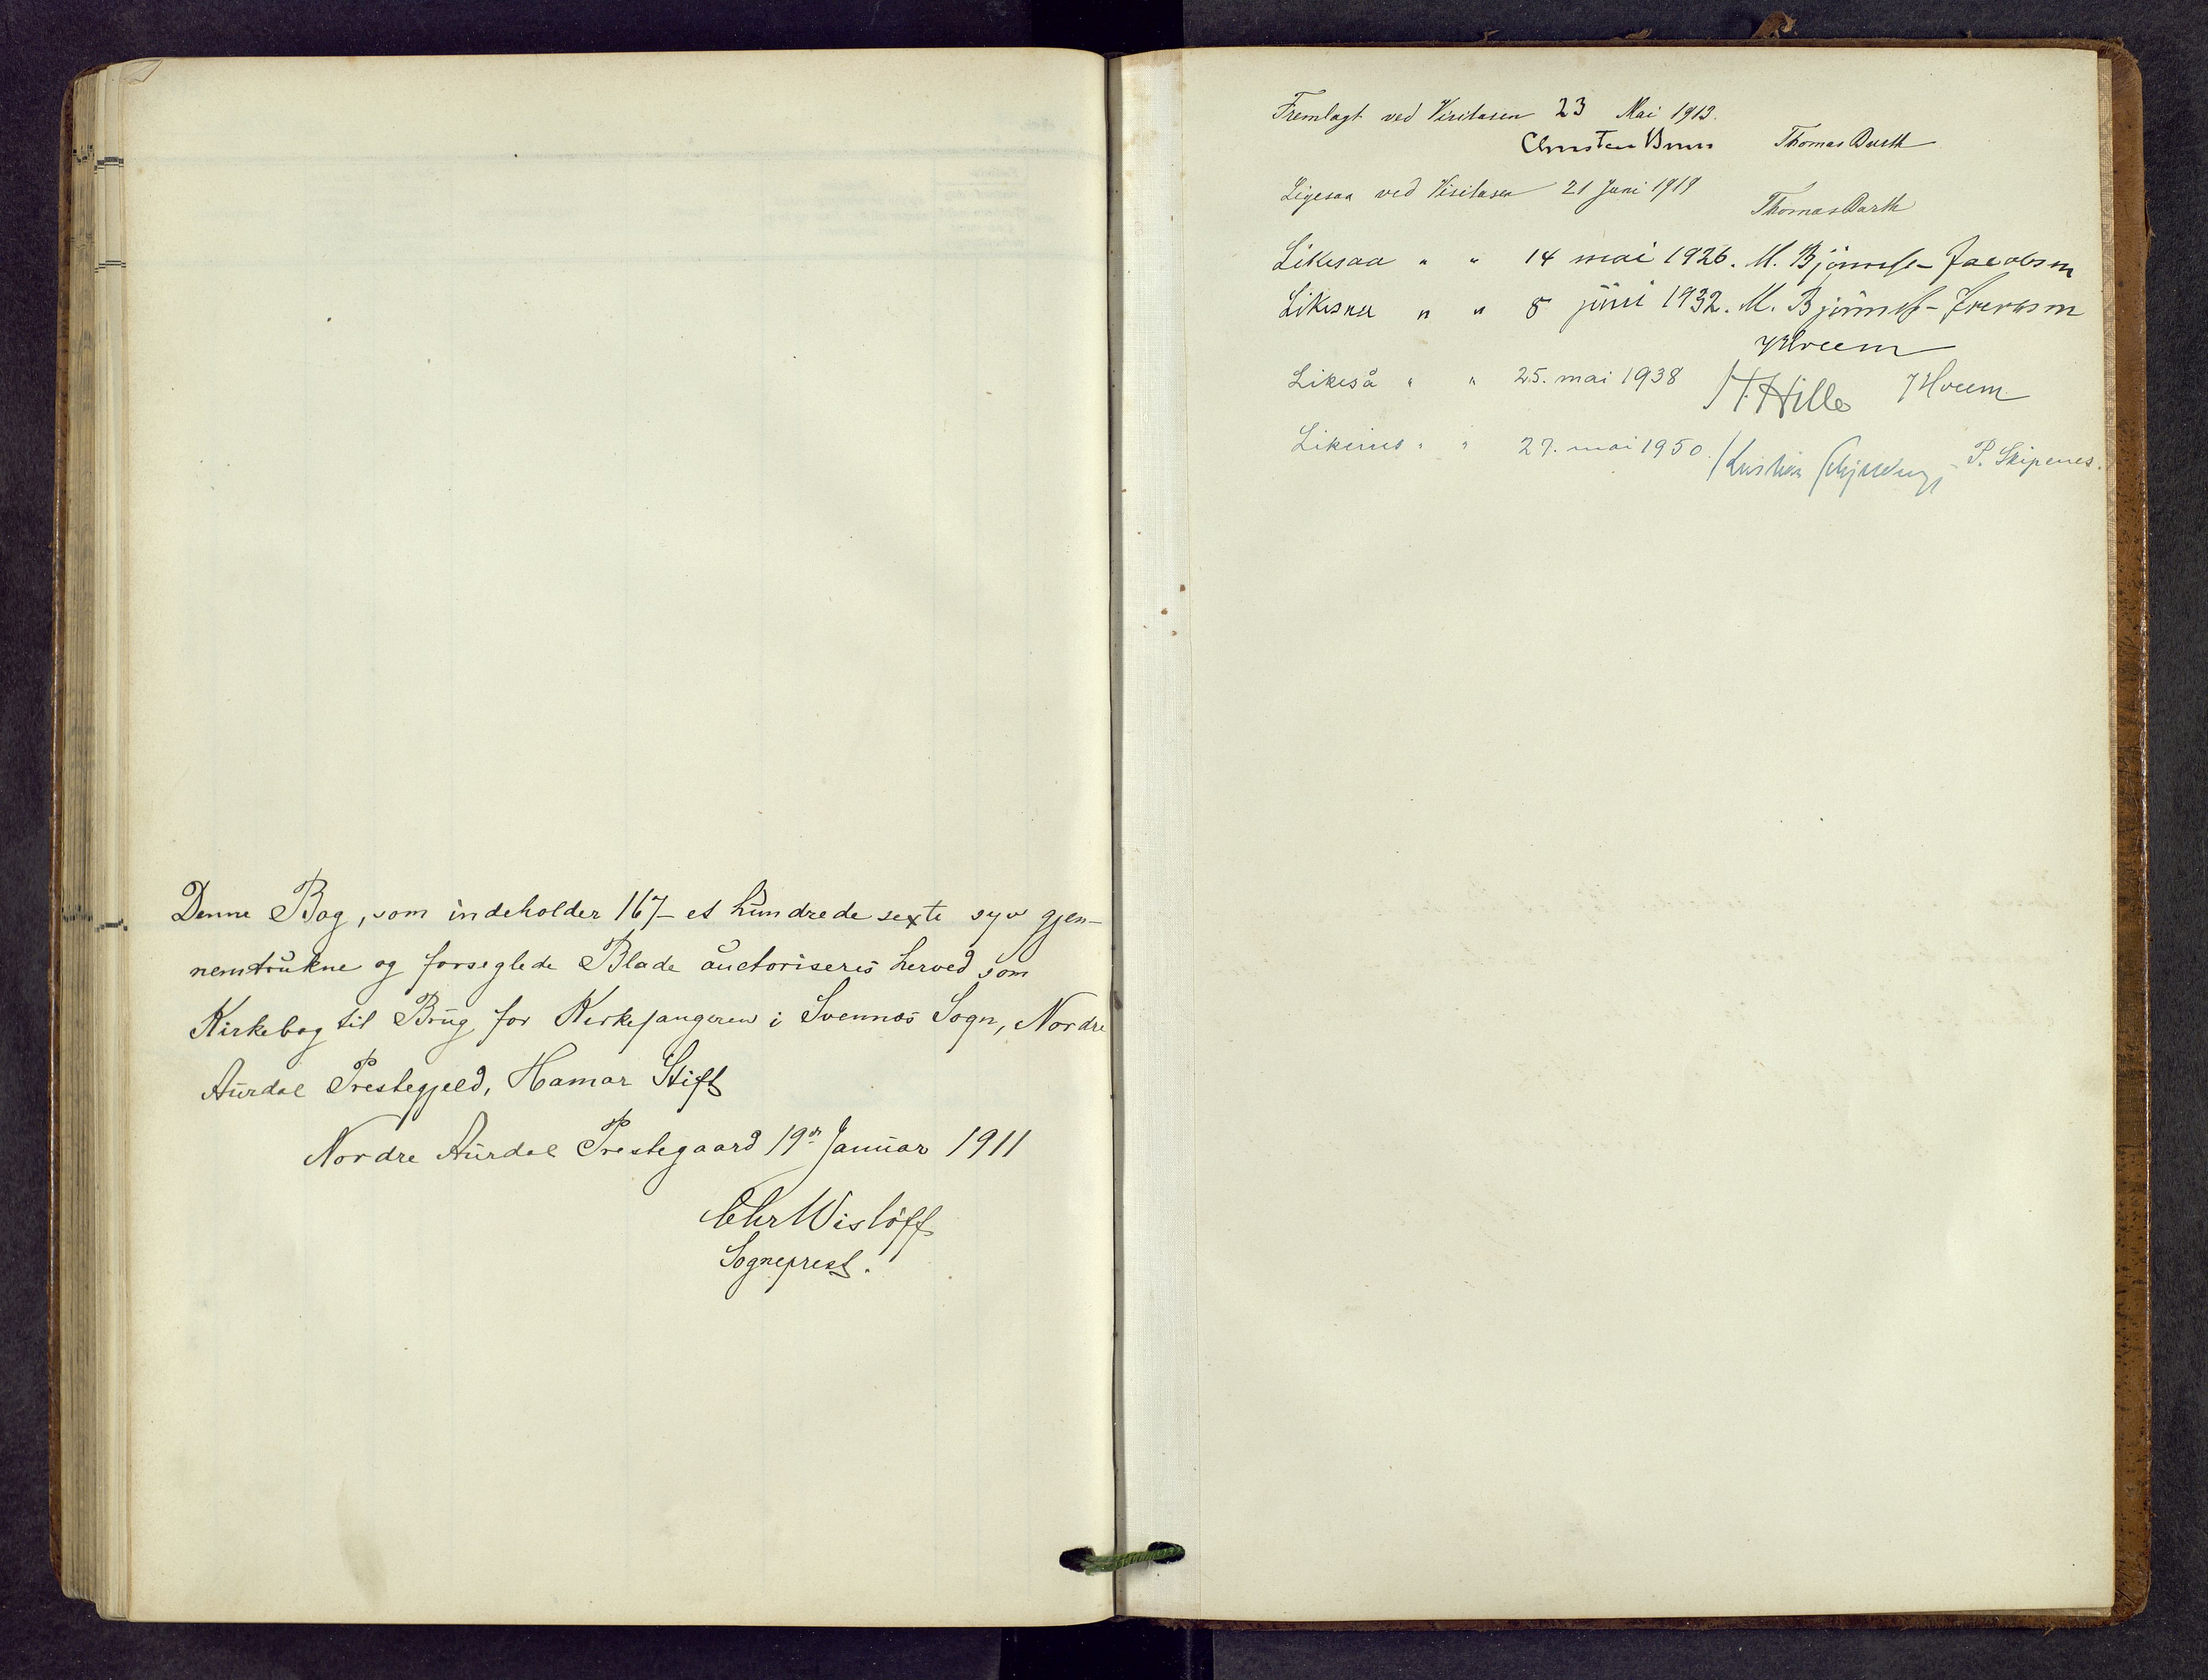 Denne Bog, som indeholder 167 – et hundrede sexti syv gjen-
nemtrukne og forseglede Blade auctoriseres herved som
Kirkebog til Brug for Kirkesangeren i Svennes Sogn, Nordre
Aurdal Prestegjeld, Hamar Stift
Nordre Aurdal Prestegaard 19de Januar 1911
Chr Wislöff
Sogneprest.
Fremlagt ved Visitasen 23 Mai 1913.
Christen Brun Thomas Barth
Ligesaa ved Visitasen 21 Juni 1919
Thomas Barth
Likesaa " " 14 mai 1926. M. Bjönness-Jacobsen
Likesaa " " 8 juni 1932. M. Bjönness-Jacobsen
Hovem
Likeså " " 25. mai 1938 H. Hille Hovem
Likeens " " 27. mai 1950. Kristian Schjelderup, P. Skipenes.